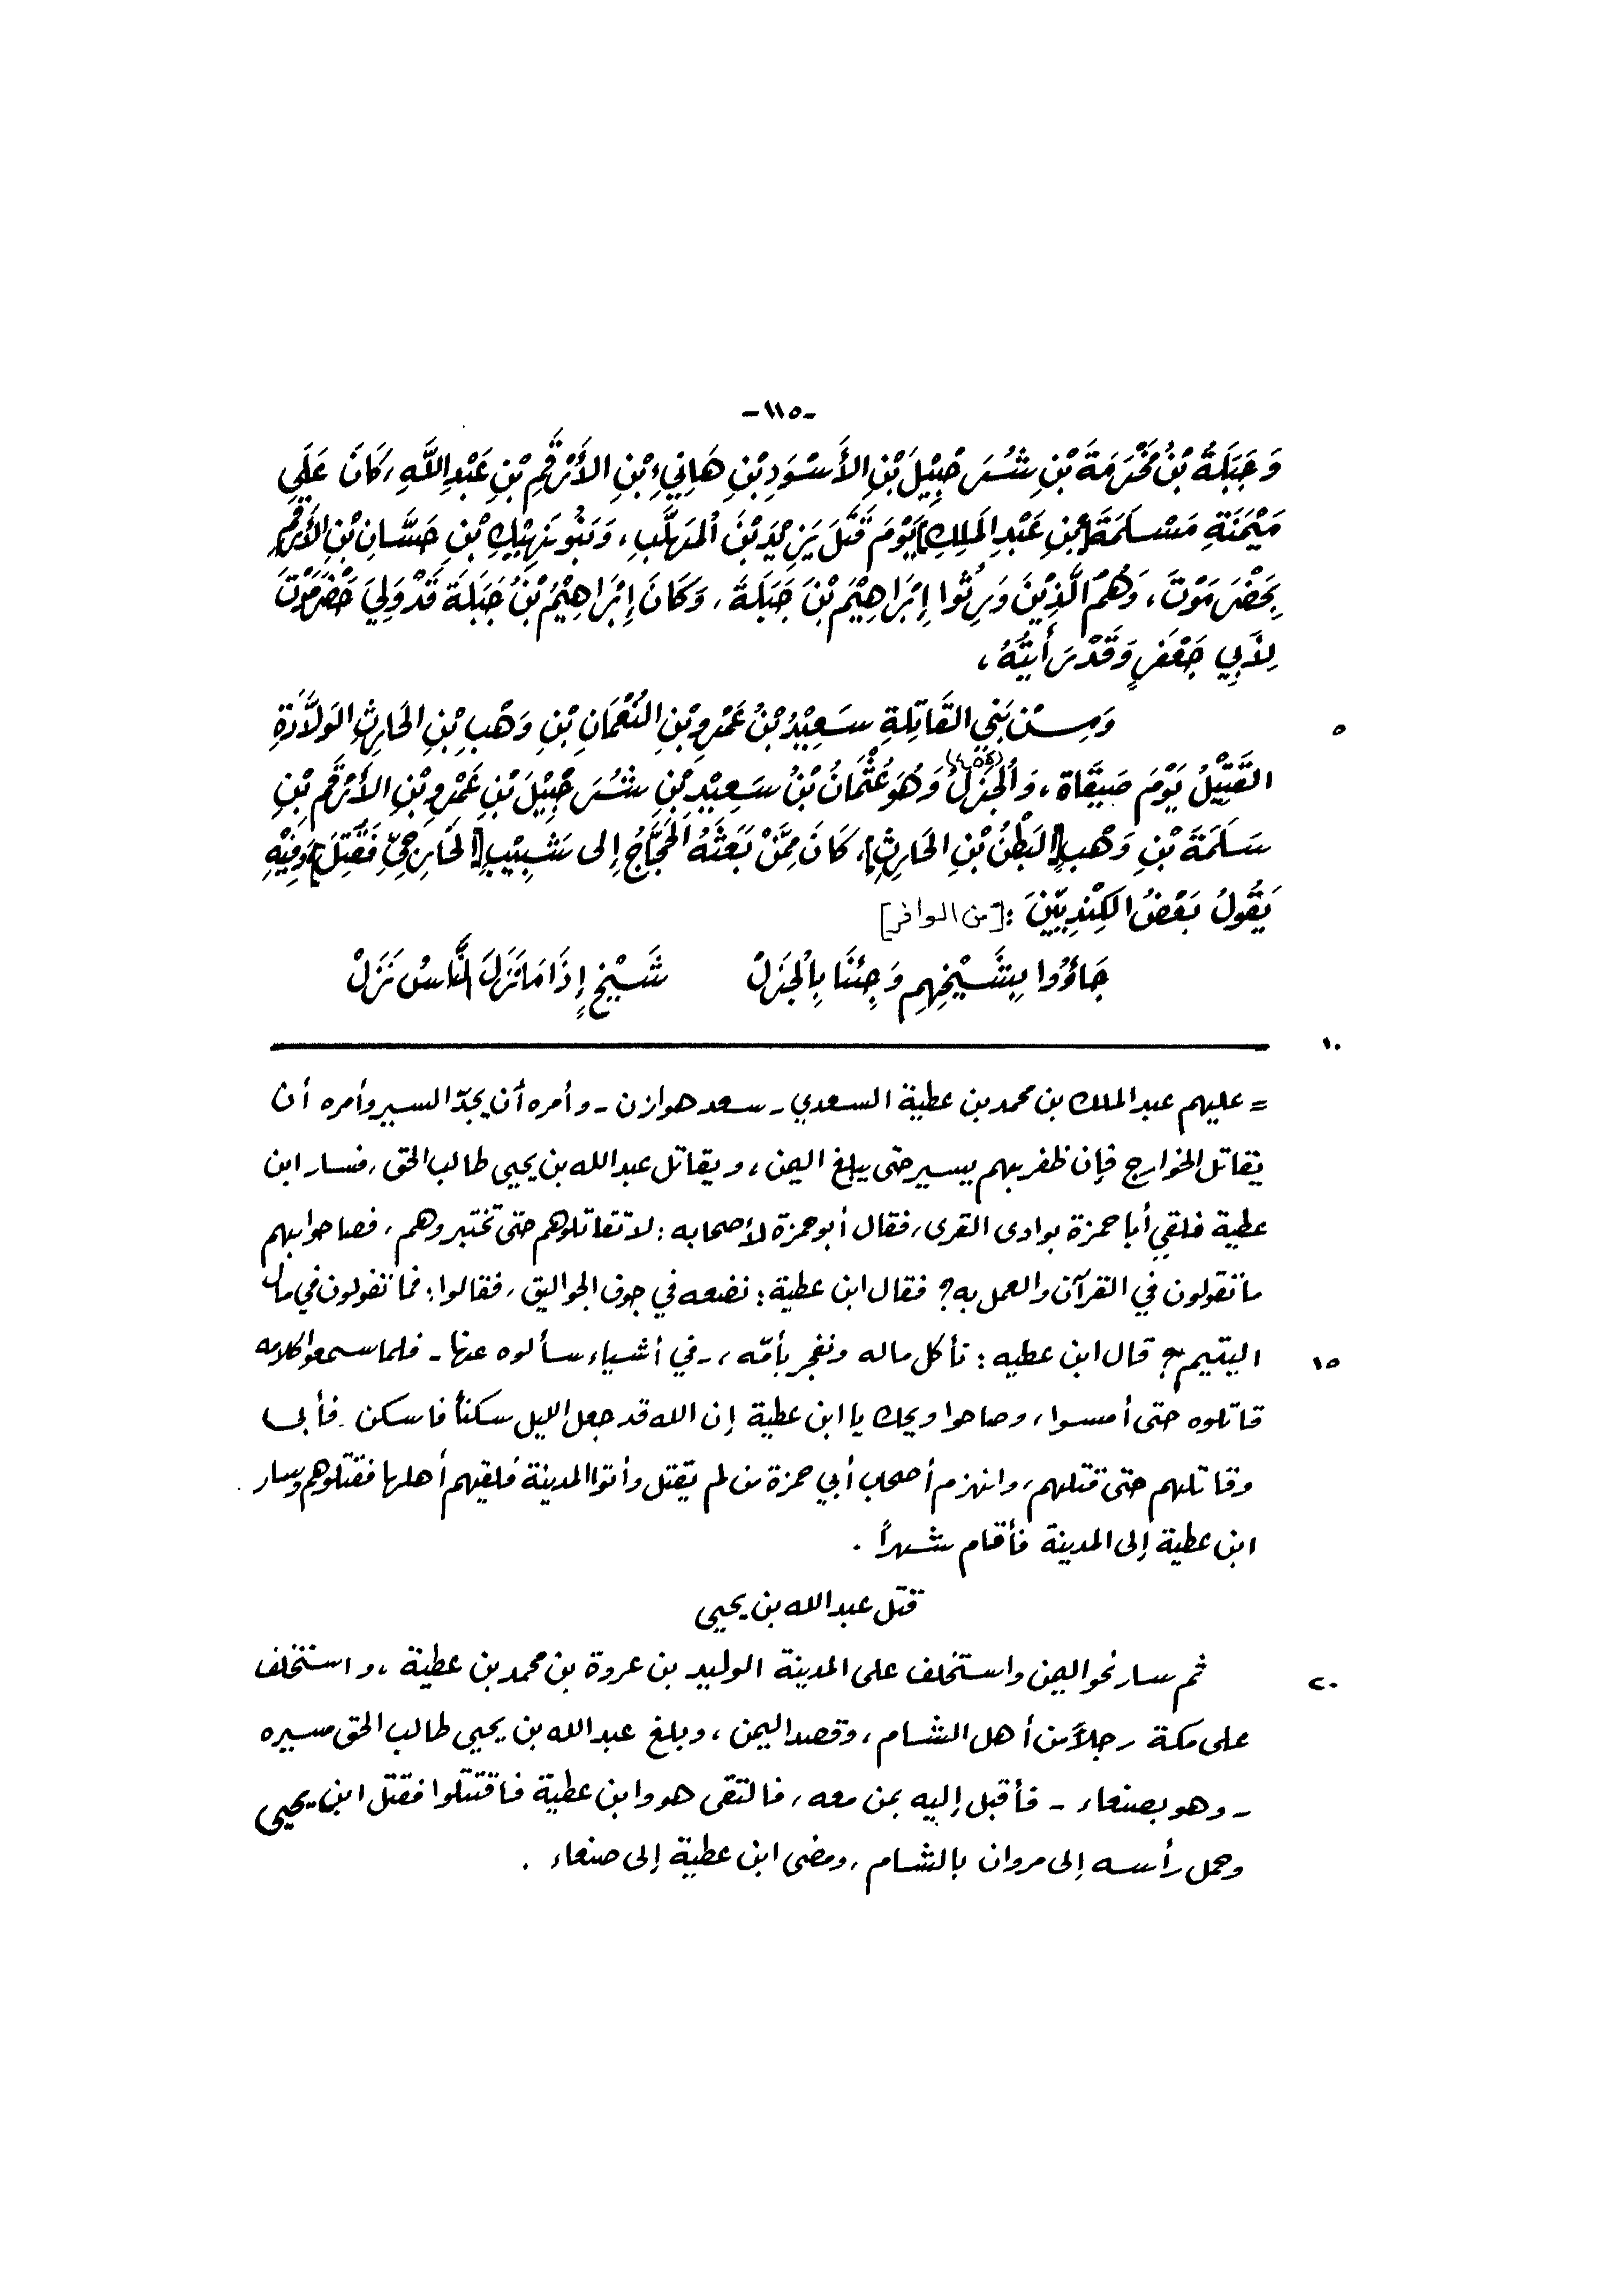 -١١٥-
وَجَبَلَةُ بْنُ مَخْرَمَةَ بْنِ شُرَحْبِيْلَ بْنِ الأَسْوَدِ بْنِ هَانِيءِ بْنِ الأَرْقَمِ بْنِ عَبْدِ اللَّهِ، كَانَ عَلَى
مَيْمَنَةِ مَسْلَمَةَ [بْنِ عَبْدِ الَمَلِكِ] يَوْمَ قَتَلَ يَزِيْدَ بْنَ الُمَهَلَّبِ، وَبَنُو نَهِيْكِ بْنِ حَسَّانِ بْنِ الأَرْقَمِ
بِحَضْرَمَوْتَ، وَهُمُ الَّذِيْنَ وَرِثُوا إِبْرَاهِيْمَ بْنَ جَبَلَةَ، وَكَانَ إِبْرَاهِيْمُ بْنُ جَبَلَةَ قَدْ وَلِيَ حَضْرَمَوْتَ
لِأَبِي جَعْفَرٍ وَقَدْ رَأَيْتُهُ،
٥ وَمِنْ بَنِي القَاتِلَةِ سَعِيْدُ بْنُ عَمْرِو بْنِ النُعْمَانِ بْنِ وَهْبِ بْنِ الحَارِثِ الوَلَّادَةِ
القَتِيْلُ يَوْمَ صَيْقَاة، وَالُجَزْلُ وَهُوَ عُثْمَانُ بْنُ سَعِيْدِ بْنِ شُرَحْبِيْلَ بْنِ عَمْرِو بْنِ الأَرْقَمِ بْنِ
سَلَمَةَ بْنِ وَهْبِ [البَطْنُ بْنِ الحَارِثِ]، كَانَ مِمَّنْ بَعَثَهُ الحَجَّاجُ إِلى شَبِيْبِ [الخَارِجِيِّ فَقُتِلَ] وَفِيْهِ
يَقُولُ بَعْضُ الكِنْدِيّيْنَ: [من الوافر]
جَاؤُوا بِشَيْخِهِمِ وَجِئْنَا بِالْجَزَلْ شَيْخٍ إِذَا مَا نَزَلَ النَّاسُ نَزَلْ
١٠
= عليهم عبد الملك بن محمد بن عطية السعدي - سعد هوازن - وأمره أن يجدّ السير وأمره أن
يقاتل الخوارج فإن ظفر بهم يسير حتى يبلغ اليمن، ويقاتل عبد الله بن يحيى طالب الحق، فسار ابن
عطية فلقي أبا حمزة بوادى القرى، فقال أبو حمزة لأصحابه: لا تقاتلوهم حتى تختبروهم، فصاحوا بهم
ما تقولون في القرآن والعمل به؟ فقال ابن عطية: نضعه في جوف الجواليق، فقالوا: فما تقولون في مال
١٥ اليتيم؟ قال ابن عطيه: نأكل ماله ونفجر بأمّه، - في أشياء سألوه عنها - فلما سمعوا كلامه
قاتلوه حتى أمسوا، وصاحوا ويحك يا ابن عطية إن الله قد جعل الليل سكنأ فاسكن. فأبى
وقاتلهم حتى قتلهم، وانهزم أصحاب أبي حمزة من لم يقتل وأتوا المدينة فلقيهم أهلها فقتلوهم وسار
ابن عطية إلى المدينة فأقام شهراً.
قتل عبد الله بن يحيى
٢٠ ثم سار نحو اليمن واستخلف على المدينة الوليد بن عروة بن محمد بن عطية، واستخلف
على مكة رجلاً من أهل الشام، وقصد اليمن، وبلغ عبد الله بن يحيى طالب الحق مسيره
- وهو بصنعاء - فأقبل إليه بمن معه، فالتقى هو وابن عطية فاقتتلوا فقتل ابن يحيى
وحمل رأسه إلى مروان بالشام، ومضى ابن عطية إلى صنعاء.